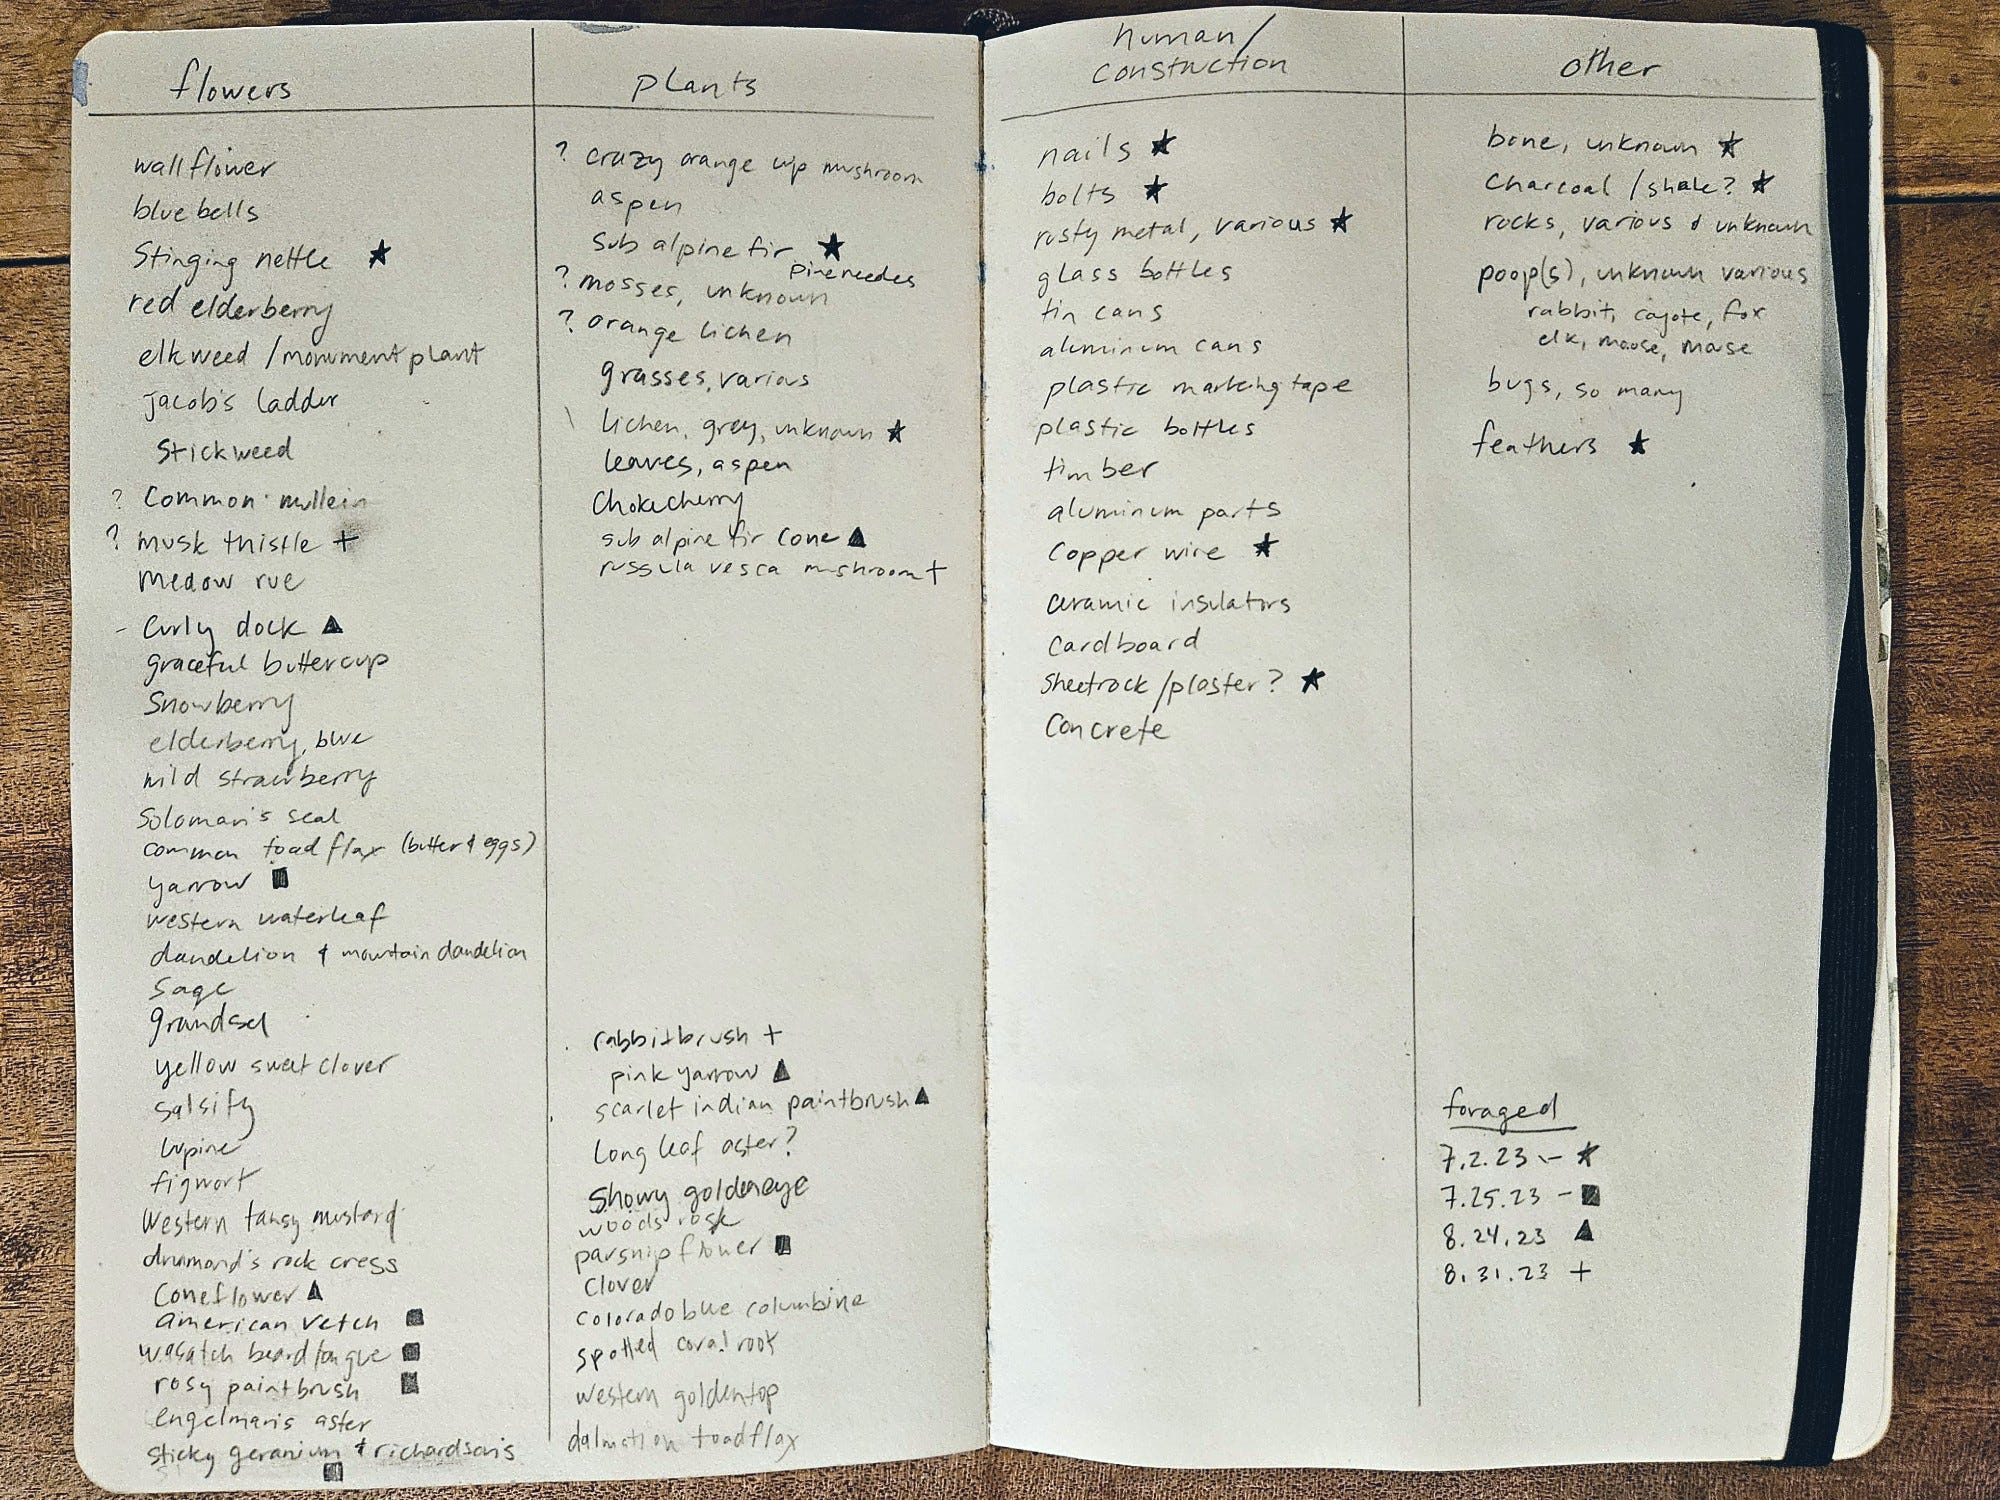 flowers
wallflower
bluebells
Stinging nettle ★
red elderberry
elkweed / monument plant
jacob's ladder
Stickweed
? Common mullein
? musk thistle +
medow rue
- Curly dock ▲
graceful buttercup
Snowberry
elderberry, blue
wild strawberry
Soloman's seal
common toadflax (butter & eggs)
yarrow ■
western waterleaf
dandelion & mountain dandelion
Sage
grandsel
yellow sweet clover
Salsify
lupine
figwort
Western tansy mustard
drumond's rock cress
Coneflower ▲
american vetch ■
wasatch beardtongue ■
rosy paintbrush ■
engelman's aster
sticky geranium & richardson's
■
plants
? crazy orange cup mushroom
aspen
sub alpine fir ★
pine needles
? mosses, unknown
? orange lichen
grasses, various
\ lichen, grey, unknown ★
leaves, aspen
Chokecherry
sub alpine fir cone ▲
russula vesca mushroom +
rabbitbrush +
pink yarrow ▲
scarlet indian paintbrush ▲
Long leaf aster?
Showy goldeneye
woods rose
parsnip flower ■
Clover
Colorado blue columbine
spotted coral root
western goldentop
dalmation toadflax
human/
construction
nails ★
bolts ★
rusty metal, various ★
glass bottles
tin cans
aluminum cans
plastic marking tape
plastic bottles
timber
aluminum parts
copper wire ★
ceramic insulators
Cardboard
Sheetrock / plaster? ★
Concrete
other
bone, unknown ★
Charcoal / shale? ★
rocks, various & unknown
poop(s), unknown various
rabbit, coyote, fox
elk, moose, mouse
bugs, so many
feathers ★
foraged
7.2.23 - ★
7.25.23 - ■
8.24.23 ▲
8.31.23 +